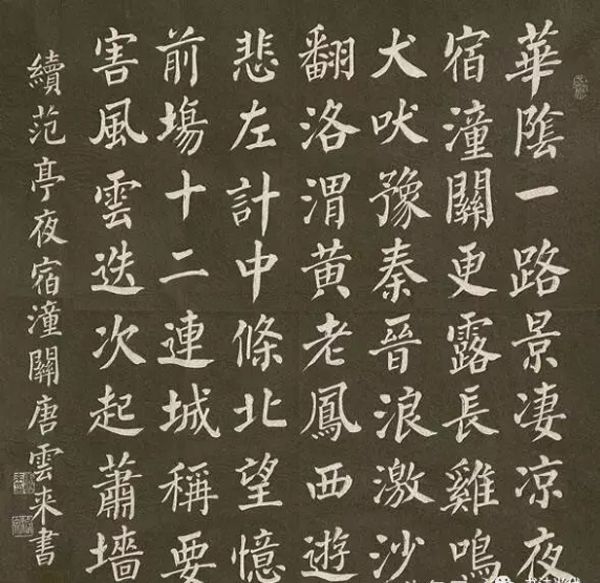 華陰一路景凄凉夜
宿潼關更露長雞鳴
犬吠豫秦晉浪激沙
翻洛渭黄老鳳西遊
悲左計中條北望憶
前塲十二連城稱要
害風雲迭次起蕭墻
續范亭夜宿潼關唐雲来書